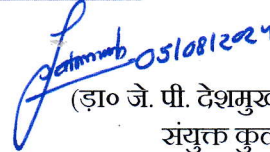 05/08/2024
(ड़ा० जे. पी. देशमुख
संयुक्त कुल